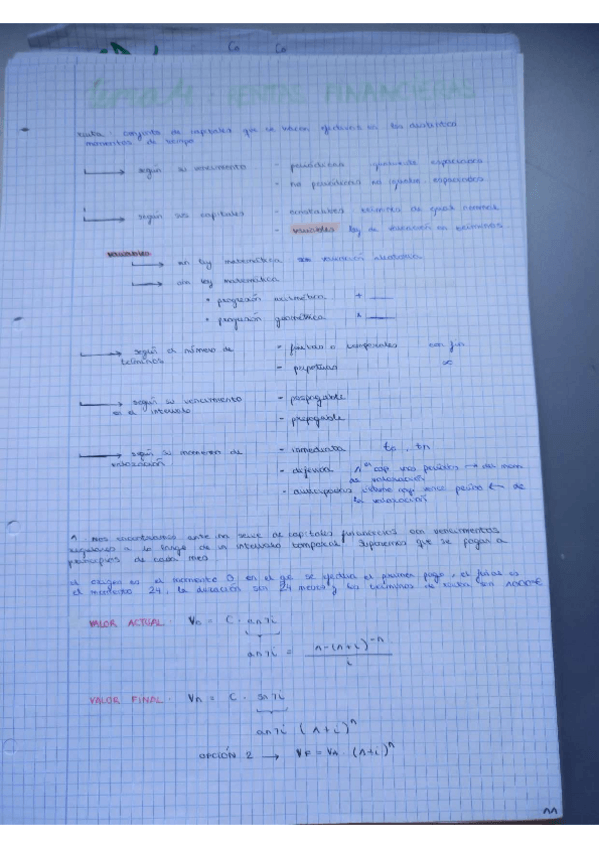 Co Co
tema 1. RENTAS FINANCIERAS
Renta: conjunto de capitales que se hacen efectivos en los distintos
momentos de tiempo
según su vencimiento - periódicas igualmente espaciados
- no periódicas no iguales espaciados
según sus capitales - constantes términos de igual
- variables ley de variación en términos
variables
sin ley matemática variación aleatoria
con ley matemática
• progresión aritmética +
• progresión geométrica *
según el número de - finitas o temporales con fin
términos
- perpetuas ∞
según su vencimiento - pospagable
en el intervalo
- prepagable
según su momento de - inmediata to, tn
valoración
- diferida 1er cap unos periodos → del mom
de valoración
- anticipada último cap vence periodo ← de
la valoración
1. nos encontramos ante una serie de capitales financieros con vencimientos
regulares a lo largo de un intervalo temporal. Suponemos que se pagan a
principios de cada mes
el origen es el momento 0 en el q se efectúa el primer pago, el final es
el momento 24, la duración son 24 meses y los términos de renta son 1000€
VALOR ACTUAL: Vo = C · an⌉i
an⌉i = 1-(1+i)^-n / i
VALOR FINAL: Vn = C · sn⌉i
an⌉i (1+i)^n
OPCIÓN 2 → VF = VA · (1+i)^n